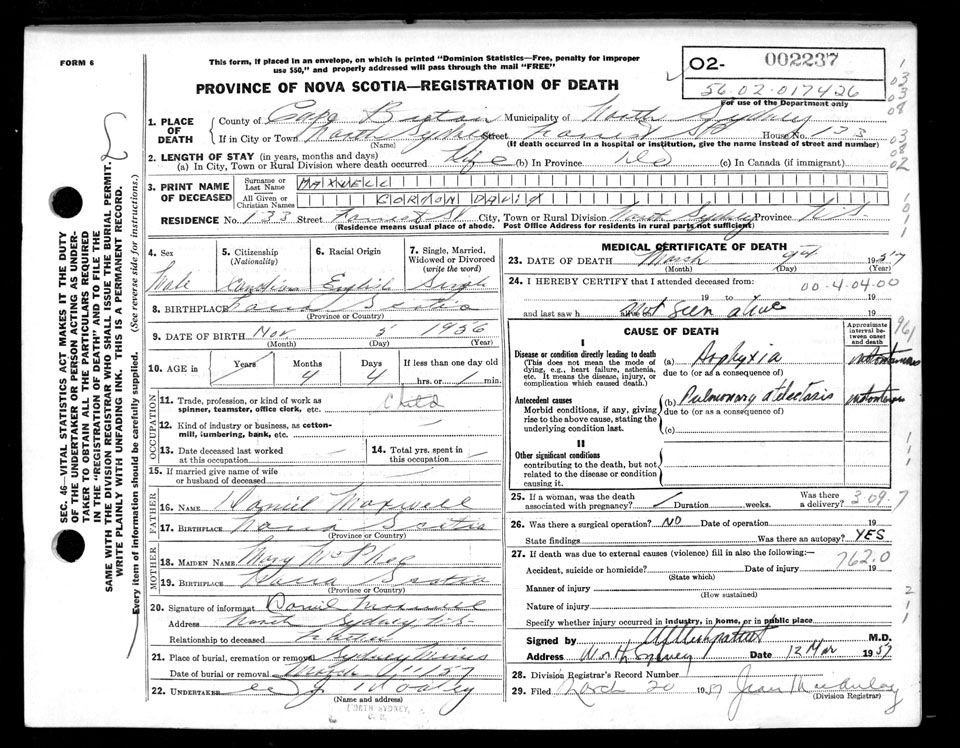 FORM 6
This form, if placed in an envelope, on which is printed "Dominion Statistics—Free, penalty for improper
use $50," and properly addressed will pass through the mail "FREE"
PROVINCE OF NOVA SCOTIA—REGISTRATION OF DEATH
O2- 002237
56-02-017426
For use of the Department only
1. PLACE OF DEATH
County of Cape Breton Municipality of North Sydney
If in City or Town North Sydney Street House No. 133
(Name) (If death occurred in a hospital or institution, give the name instead of street and number)
2. LENGTH OF STAY (in years, months and days)
(a) In City, Town or Rural Division where death occurred Life (b) In Province (c) In Canada (if immigrant)
3. PRINT NAME OF DECEASED
Surname or Last Name MAXWELL
All Given or Christian Names GORDON DAVID
RESIDENCE No. 133 Street St City, Town or Rural Division North Sydney Province N.S.
(Residence means usual place of abode. Post Office Address for residents in rural parts not sufficient)
4. Sex Male
5. Citizenship (Nationality) Canadian
6. Racial Origin English
7. Single, Married, Widowed or Divorced (write the word) Single
8. BIRTHPLACE Nova Scotia
(Province or Country)
9. DATE OF BIRTH Nov 5 1956
(Month) (Day) (Year)
10. AGE in Years Months 4 Days 4 If less than one day old hrs. or min.
OCCUPATION
11. Trade, profession, or kind of work as spinner, teamster, office clerk, etc. Child
12. Kind of industry or business, as cotton-mill, lumbering, bank, etc.
13. Date deceased last worked at this occupation
14. Total yrs. spent in this occupation
15. If married give name of wife or husband of deceased
FATHER
16. NAME Daniel Maxwell
17. BIRTHPLACE Nova Scotia
(Province or Country)
MOTHER
18. MAIDEN NAME Mary McPhee
19. BIRTHPLACE Nova Scotia
(Province or Country)
20. Signature of informant Daniel Maxwell
Address North Sydney N.S.
Relationship to deceased
21. Place of burial, cremation or removal Sydney Mines
Date of burial or removal March 11/57
22. UNDERTAKER
(Name and address)
NORTH SYDNEY,
MEDICAL CERTIFICATE OF DEATH
23. DATE OF DEATH March 9th 1957
(Month) (Day) (Year)
24. I HEREBY CERTIFY that I attended deceased from:
00-4-04-00
19 to 19
and last saw h alive on Not seen alive
CAUSE OF DEATH
Approximate interval between onset and death
I
Disease or condition directly leading to death
(This does not mean the mode of dying, e.g., heart failure, asthenia, etc. It means the disease, injury, or complication which caused death.)
(a) Asphyxia
due to (or as a consequence of)
Antecedent causes
Morbid conditions, if any, giving rise to the above cause, stating the underlying condition last.
(b) Pulmonary atelectasis
due to (or as a consequence of)
(c)
II
Other significant conditions
contributing to the death, but not related to the disease or condition causing it.
25. If a woman, was the death associated with pregnancy? Duration weeks. Was there a delivery? 309.7
26. Was there a surgical operation? NO Date of operation 19
State findings Was there an autopsy? YES
27. If death was due to external causes (violence) fill in also the following:—
762.0
Accident, suicide or homicide? Date of injury 19
(State which)
Manner of injury
(How sustained)
Nature of injury
Specify whether injury occurred in industry, in home, or in public place
Signed by M.D.
Address North Sydney Date 12 Mar 1957
28. Division Registrar's Record Number
29. Filed March 20 1957 Jean
(Division Registrar)
SEC. 46—VITAL STATISTICS ACT MAKES IT THE DUTY
OF THE UNDERTAKER OR PERSON ACTING AS UNDER-
TAKER TO OBTAIN ALL THE PARTICULARS REQUIRED
IN THE "REGISTRATION OF DEATH" AND TO FILE THE
SAME WITH THE DIVISION REGISTRAR WHO SHALL ISSUE THE BURIAL PERMIT.
WRITE PLAINLY WITH UNFADING INK. THIS IS A PERMANENT RECORD.
Every item of information should be carefully supplied. (See reverse side for instructions.)